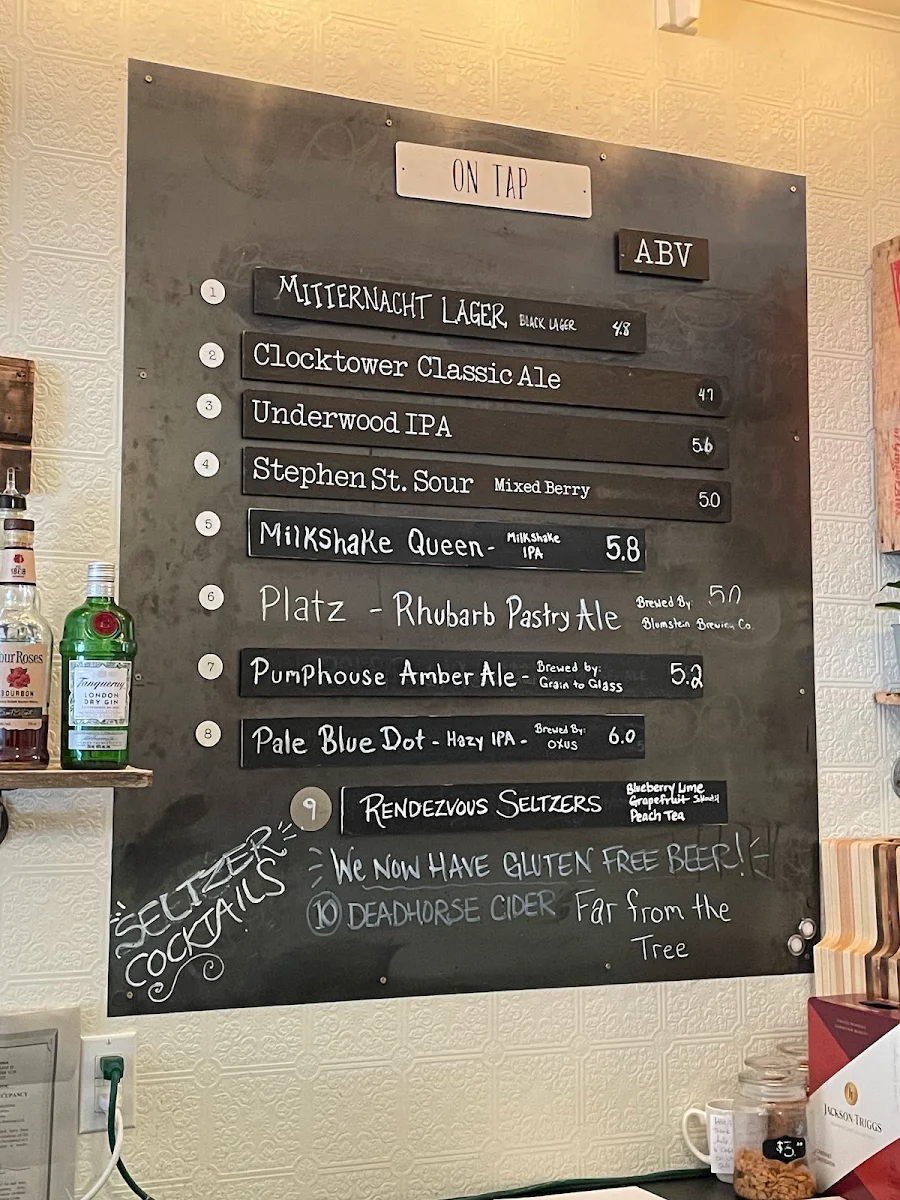 ON TAP
ABV
1 MITTERNACHT LAGER BLACK LAGER 4.8
2 Clocktower Classic Ale 4.7
3 Underwood IPA 5.6
4 Stephen St. Sour Mixed Berry 5.0
5 Milkshake Queen - Milkshake IPA 5.8
6 Platz - Rhubarb Pastry Ale Brewed By: Blumstein Brewing Co. 5.0
7 Pumphouse Amber Ale - Brewed by: Grain to Glass 5.2
8 Pale Blue Dot - Hazy IPA - Brewed By: OXUS 6.0
9 RENDEZVOUS SELTZERS Blueberry Lime
Grapefruit
Peach Tea
SELTZER
COCKTAILS
WE NOW HAVE GLUTEN FREE BEER!
10 DEADHORSE CIDER Far from the
Tree
1888
Four Roses
BOURBON
Tanqueray
LONDON
DRY GIN
JACKSON-TRIGGS
$3.